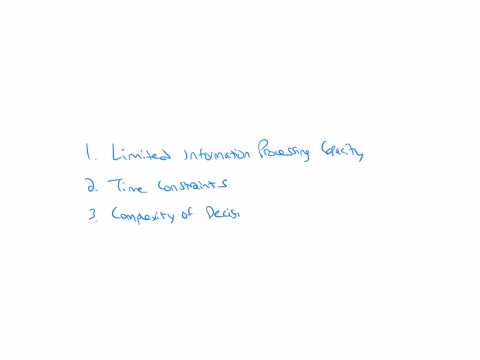 1. Limited Information Processing Capacity
2. Time Constraints
3. Complexity of Decisi